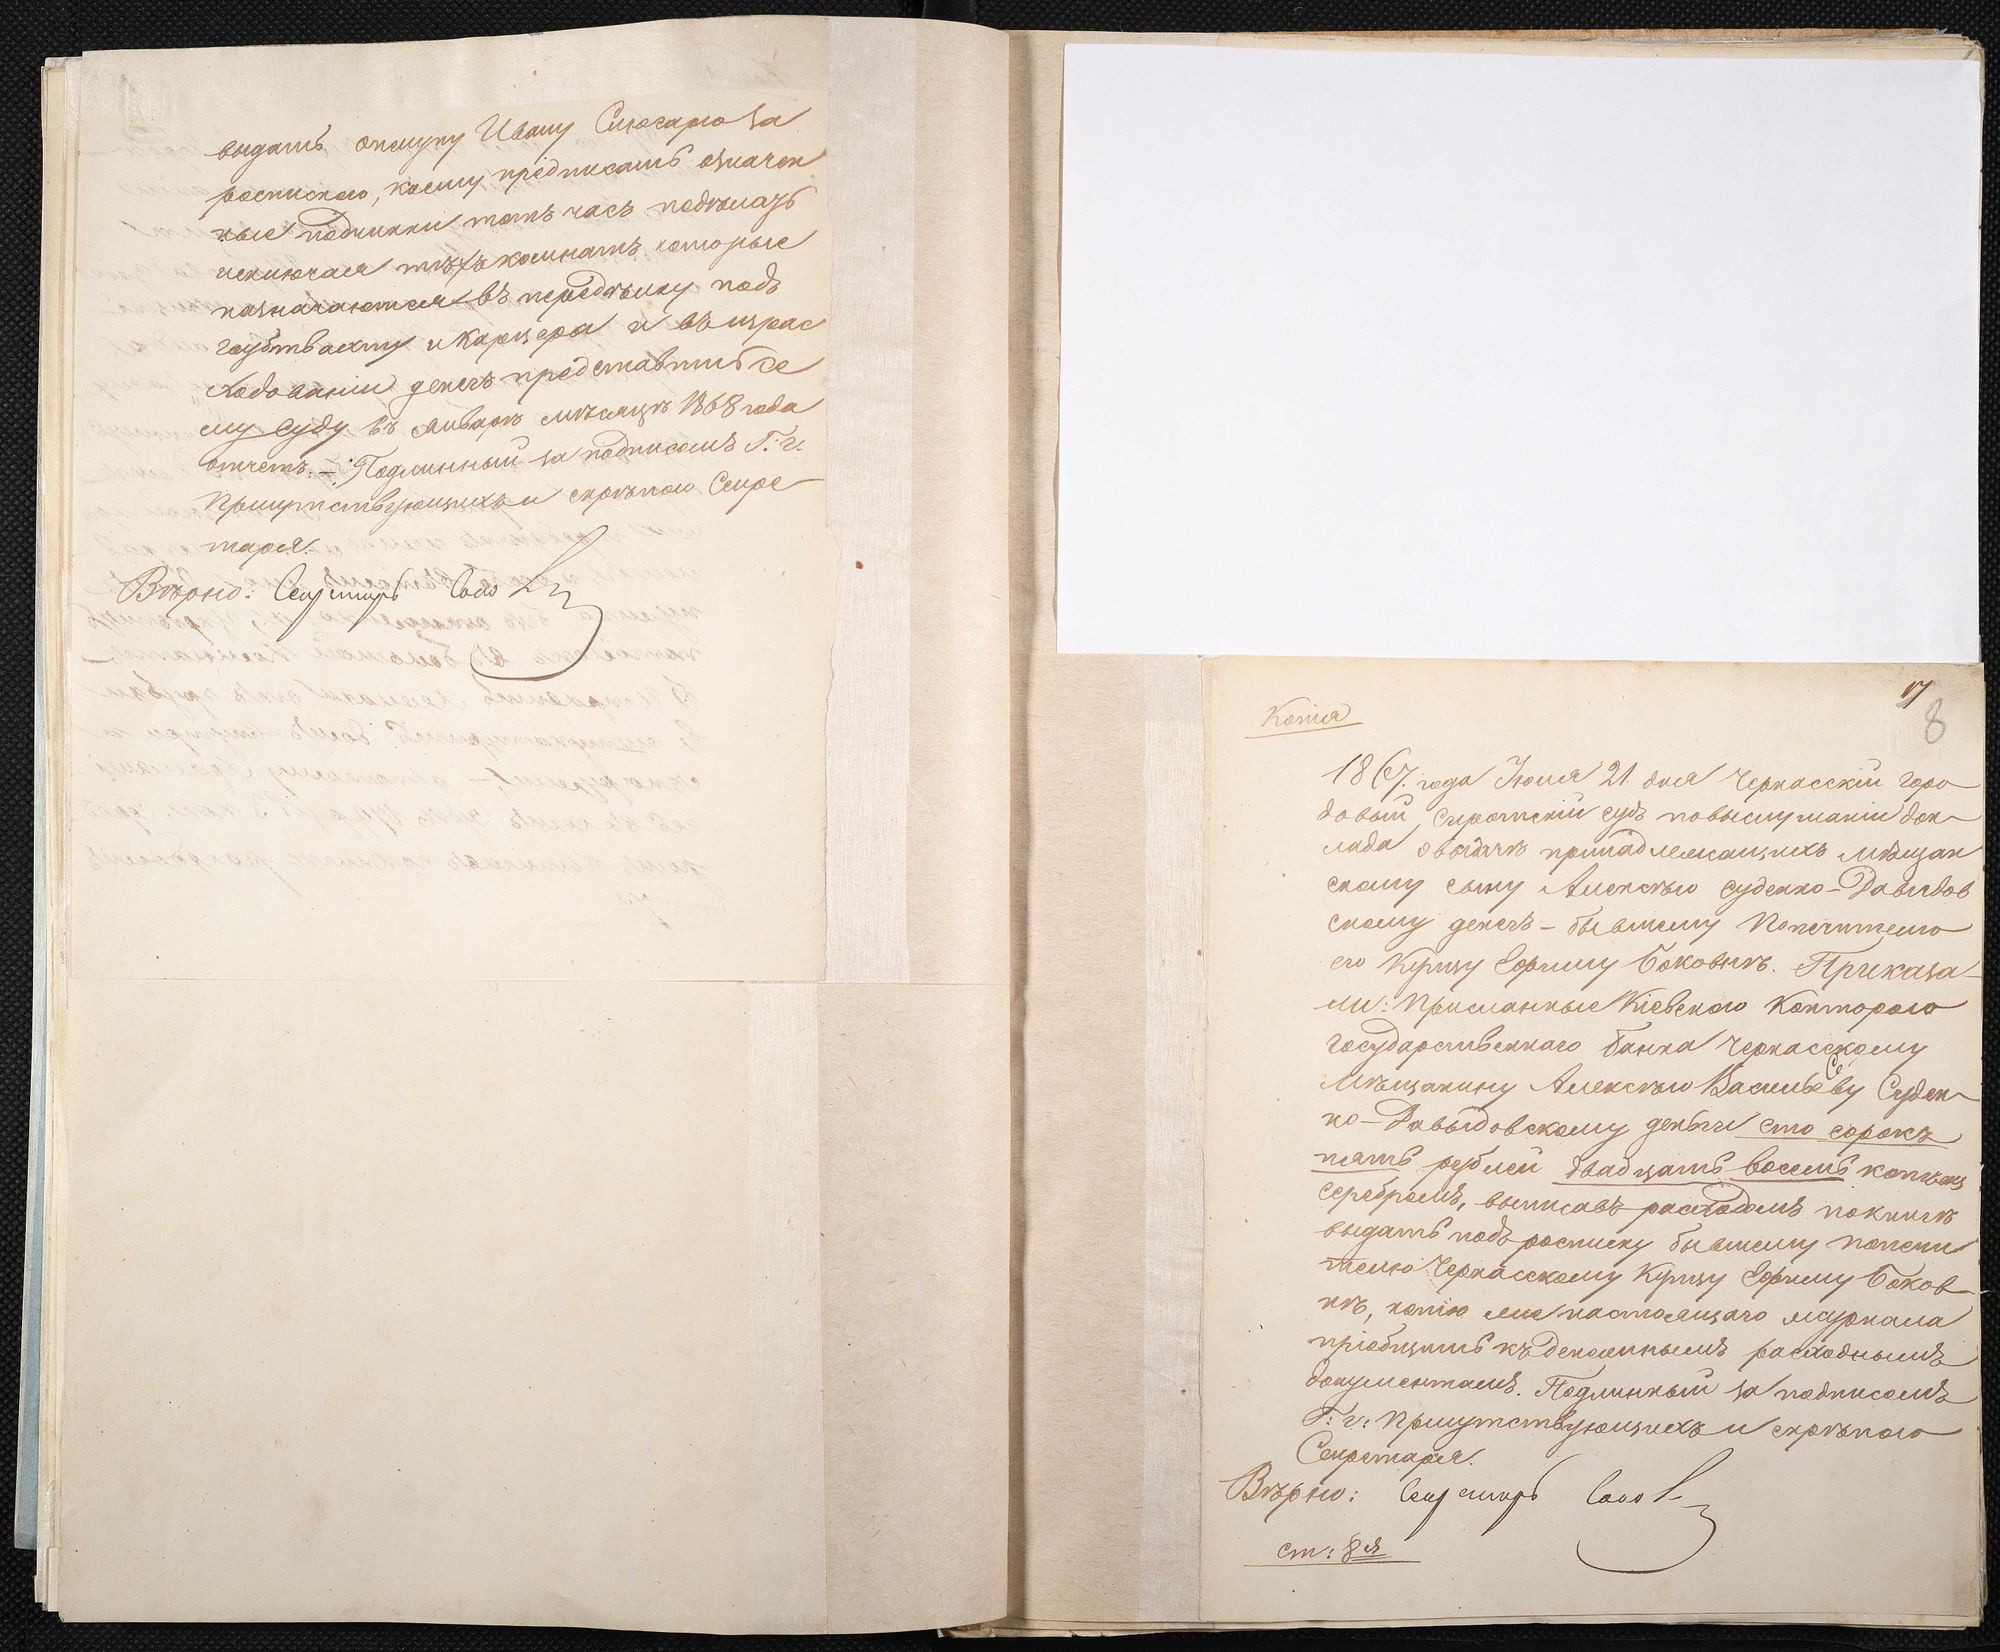 выдать опекуну Ивану Слюсарю за
роспискою, коему предписать означен
ные починки тотъ часъ подѣлать
исключая тѣхъ комнатъ которые
назначаются въ передѣлку подъ
гауптвахту и карцеры и въ израс
ходованіи денегъ представить се
му суду въ Январѣ мѣсяцѣ 1868 года
отчетъ. – Подлинный за подписомъ Г. г.
Присутствующихъ и скрѣпою Секре
таря.
Вѣрно: Секретарь
17
8
Копія
1867. года Іюля 21 дня Черкасскій горо
довый сиротскій судъ по выслушаніи док
лада о выдачѣ принадлежащихъ мѣщан
скому сыну Алексѣю Суденко-Давыдов
скому денегъ – бывшему Попечителю
его Купцу Ефиму Боковнѣ. Приказа
ли: Присланные Кіевскою Конторою
Государственнаго банка Черкасскому
Мѣщанину Алексѣю Васильеву Суден
ко-Давыдовскому деньги сто сорокъ
пять рублей двадцать восемь копѣекъ
серебромъ, выписавъ расходомъ по книгѣ
выдать подъ росписку бывшему попечи
телю Черкасскому Купцу Ефиму Боков
нѣ, копію же настоящаго журнала
пріобщить къ денежнымъ расходнымъ
документамъ. Подлинный за подписомъ
Г. г. Присутствующихъ и скрѣпою
Секретаря.
Вѣрно: Секретарь
ст: 8я